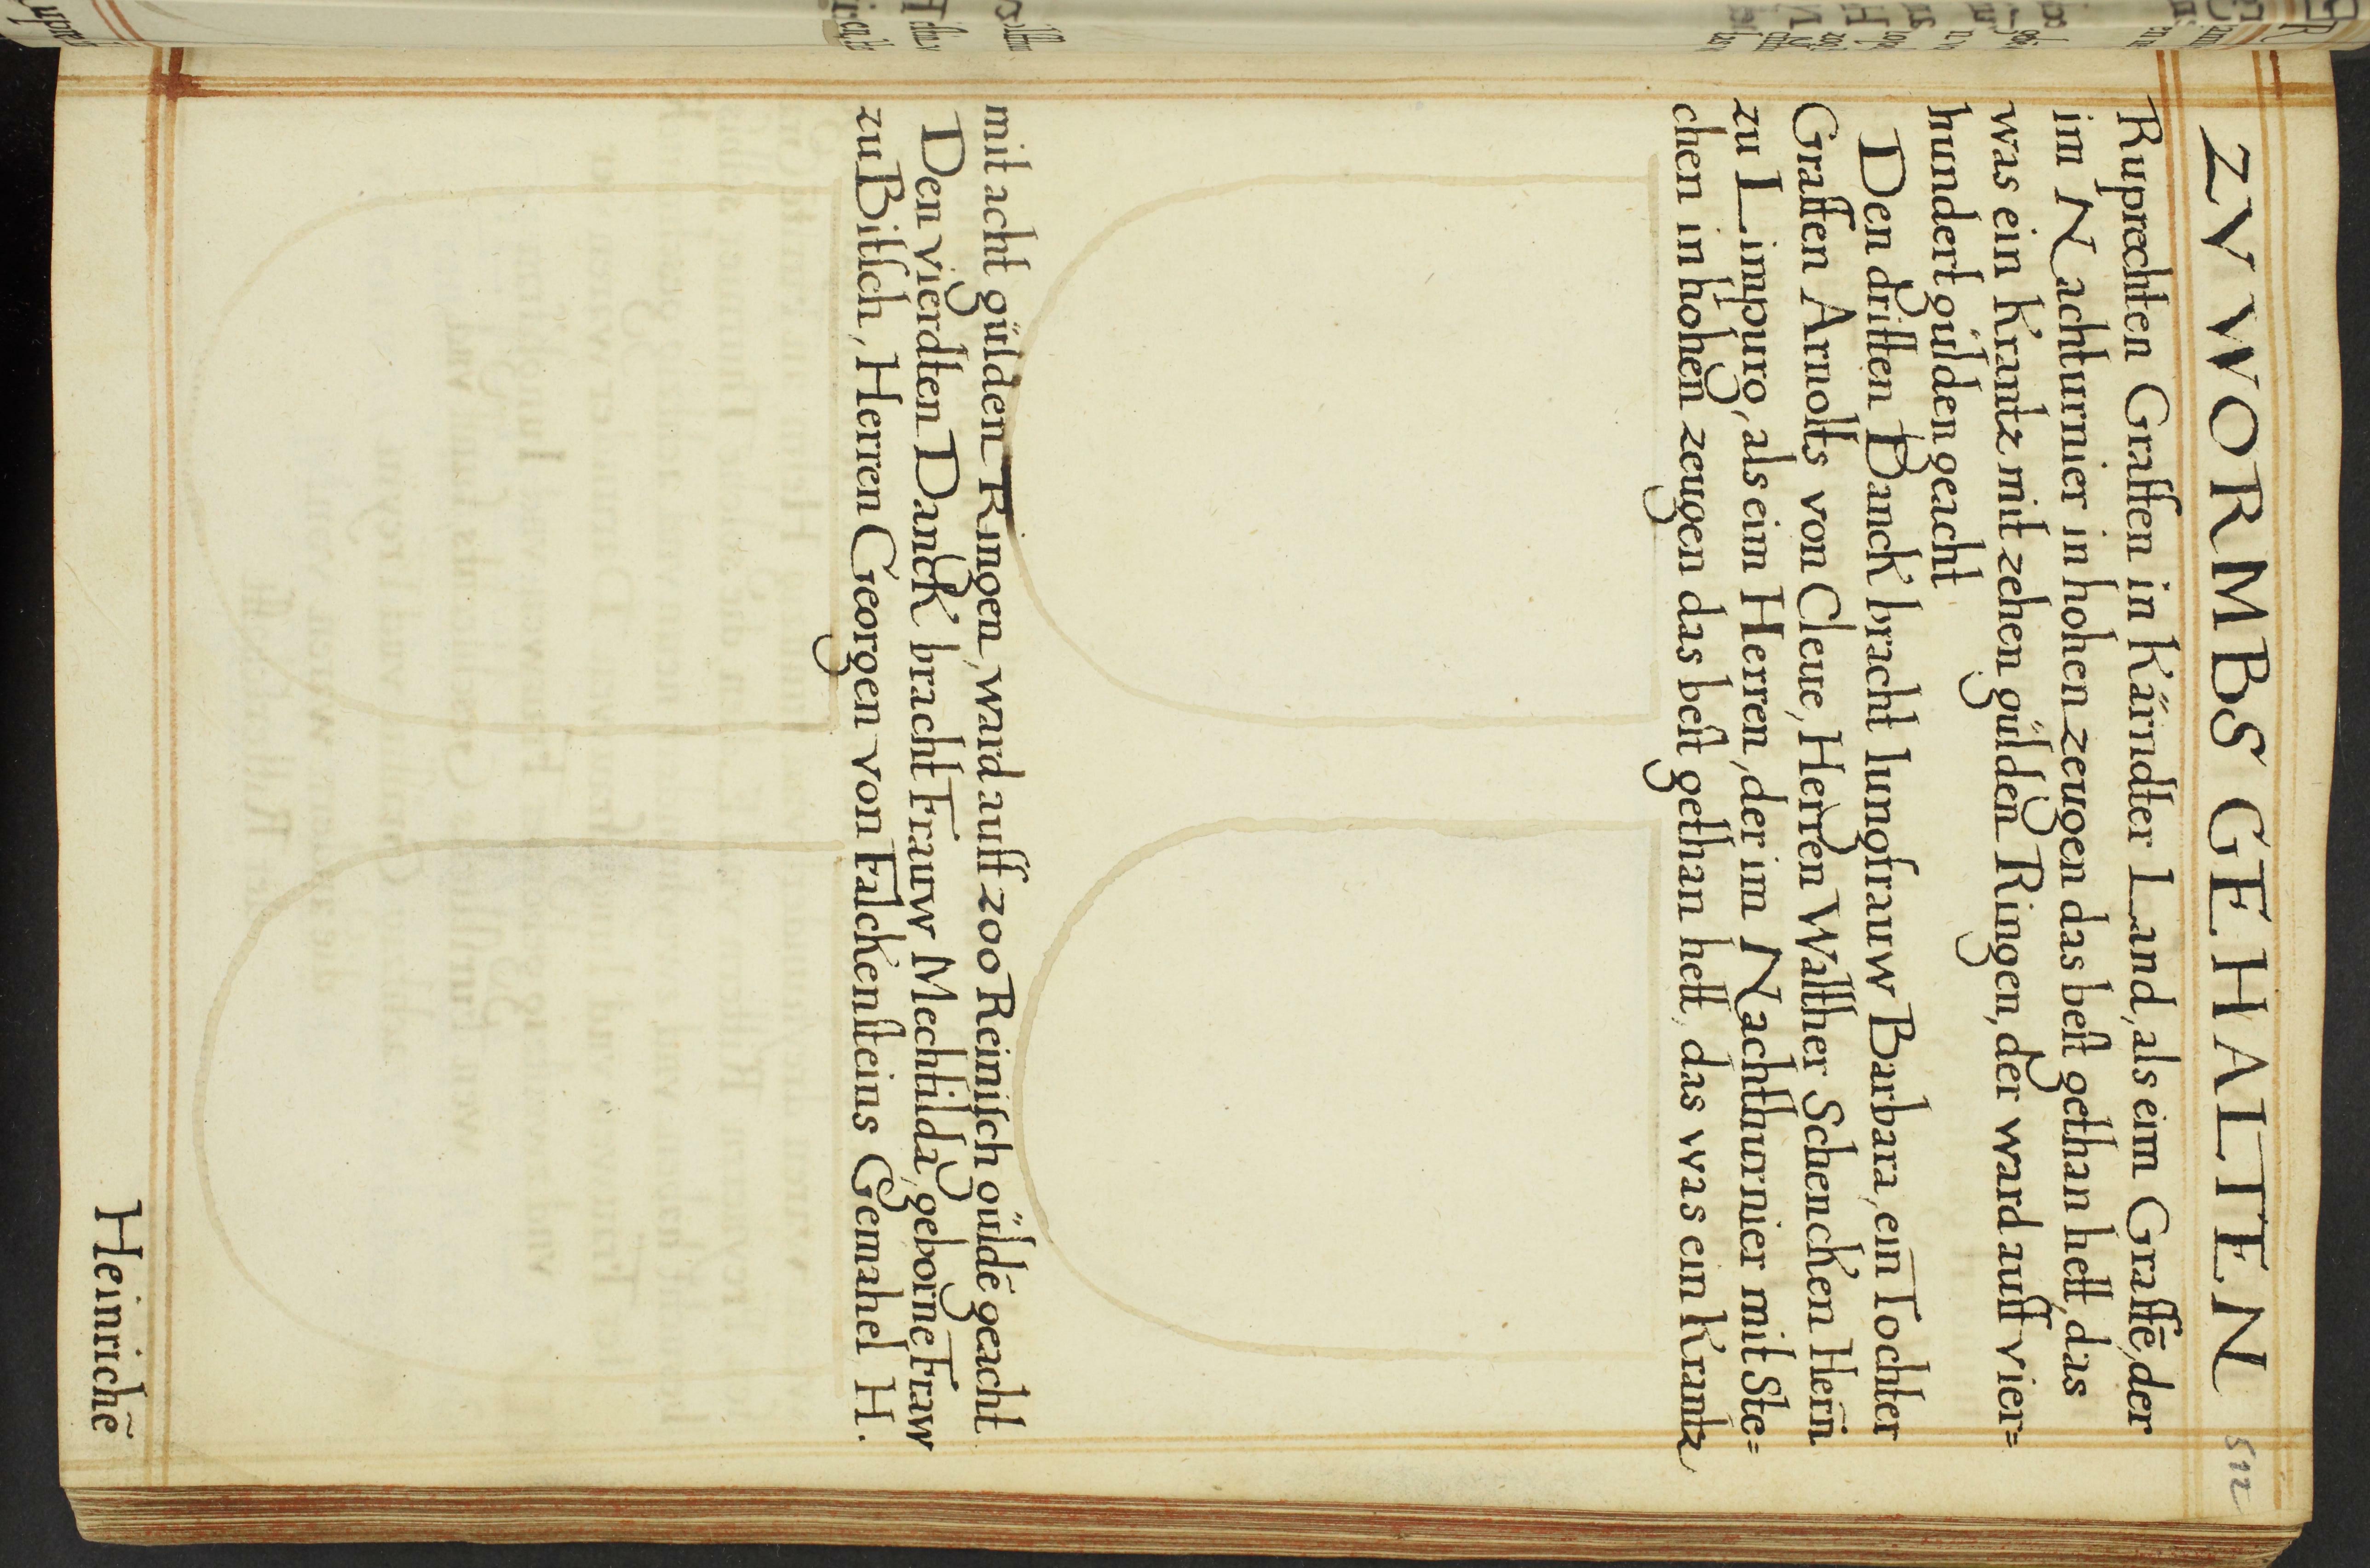 ZV WORMBS GEHALTEN 512
Ruprechten Graffen in Kärndter Land, als eim Graffē, der
im Nachturnier in hohen zeugen das best gethan hett, das
was ein Krantz mit zehen gülden Ringen, der ward auff vier=
hundert gulden geacht
Den dritten Danck bracht Iungfrauw Barbara, ein Tochter
Graffen Arnolts von Cleue, Herren Walther Schencken Hern̄
zu Limpurg, als eim Herren, der im Nachthurnier mit Ste=
chen in hohen zeugen das best gethan hett, das was ein Krantz
mit acht gülden Ringen, ward auff 200 Reinisch güldē geacht
Den vierdten Danck bracht Frauw Mechtilda, geborne Fraw
zu Bitsch, Herren Georgen von Falckensteins Gemahel H.
Heinrichē